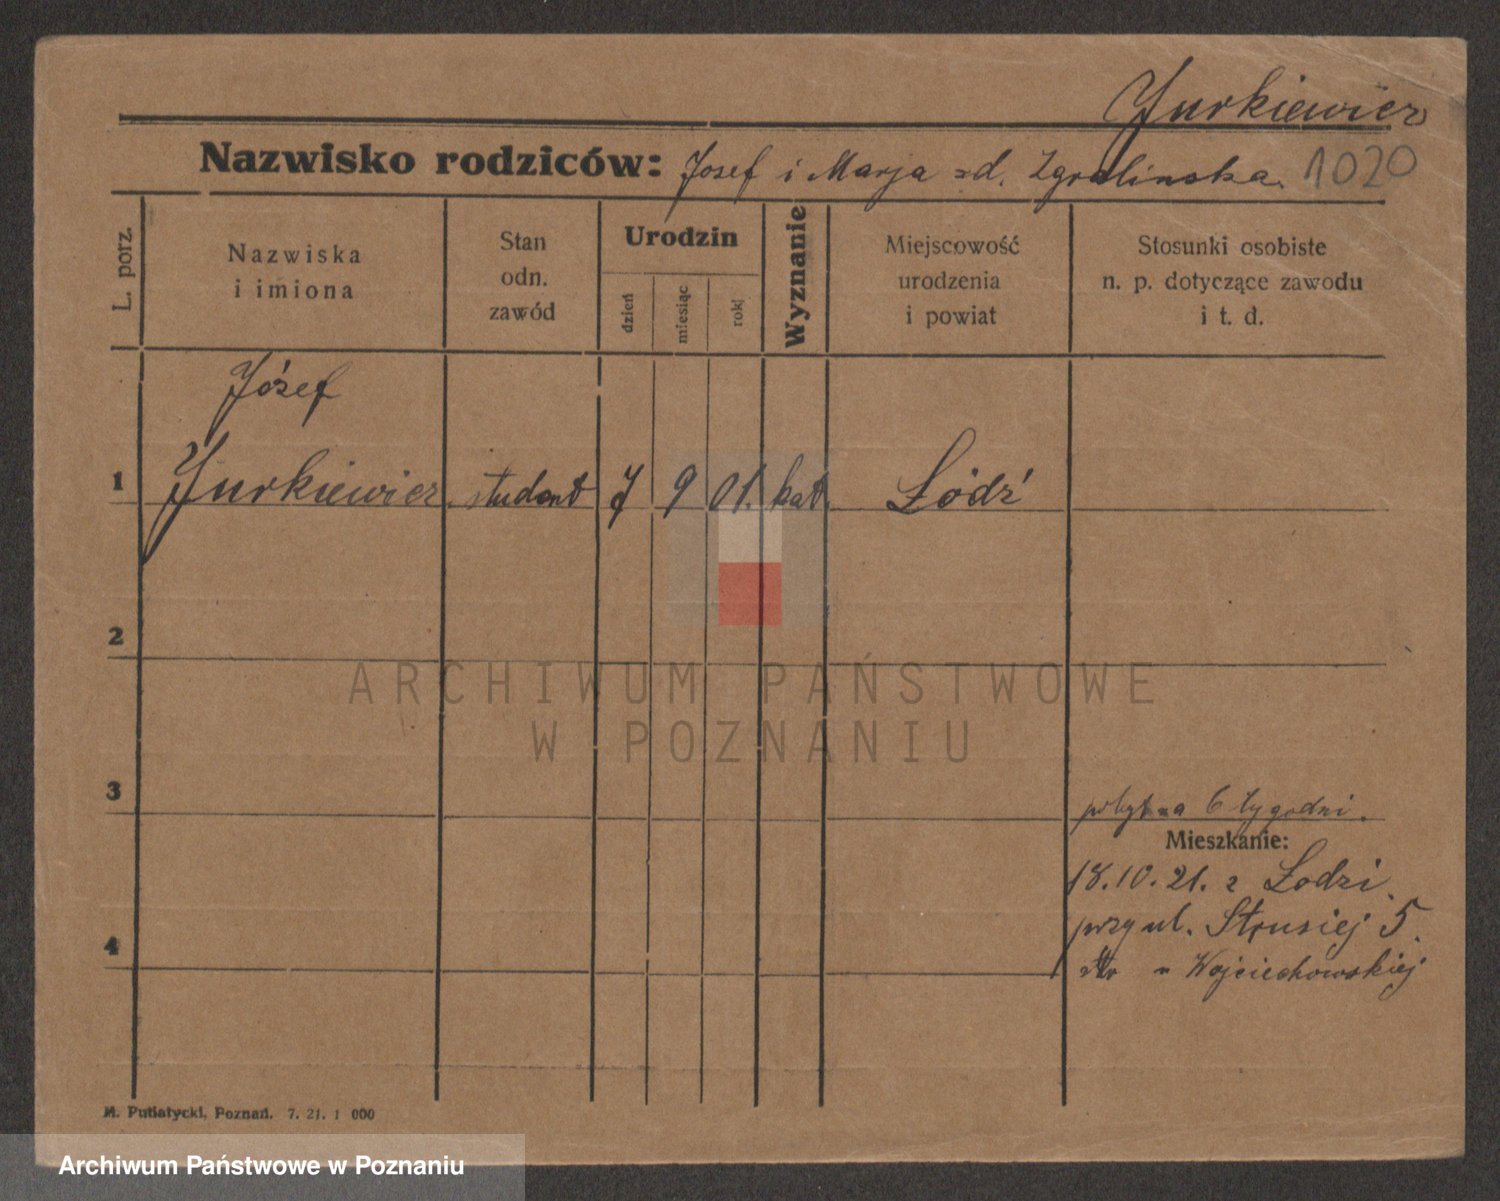 Jurkiewicz
Nazwisko rodziców: Josef i Marja zd. Zgralinska. 1020
L. porz.
Nazwiska
i imiona
Stan
odn.
zawód
Urodzin
dzień
miesiąc
rok
Wyznanie
Miejscowość
urodzenia
i powiat
Stosunki osobiste
n. p. dotyczące zawodu
i t. d.
Józef
1 Jurkiewicz student 7 9 01. kat. Łódź
2
ARCHIWUM PAŃSTWOWE
W POZNANIU
3
pobyt na 6 tygodni.
Mieszkanie:
18.10.21. z Łodzi.
przy ul. Strusiej 5.
4
u Wojciechowskiej
M. Putiatycki, Poznań. 7. 21. 1 000
Archiwum Państwowe w Poznaniu